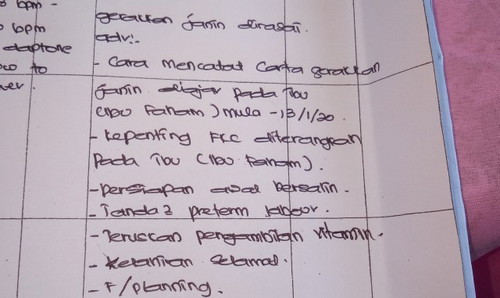 bpm -
gerakkan janin dirasai.
bpm
adv:-
daptone
- Cara mencatat Carta gerakkan
to
janin diajar pada ibu
ver.
(Ibu Faham) mula -13/1/20.
- kepenting FKC diterangkan
pada ibu (Ibu Faham).
- persiapan awal bersalin.
- Tanda2 preterm labour.
- Teruscan pengambilan vitamin.
- Kelahiran selamat.
- F/planning.